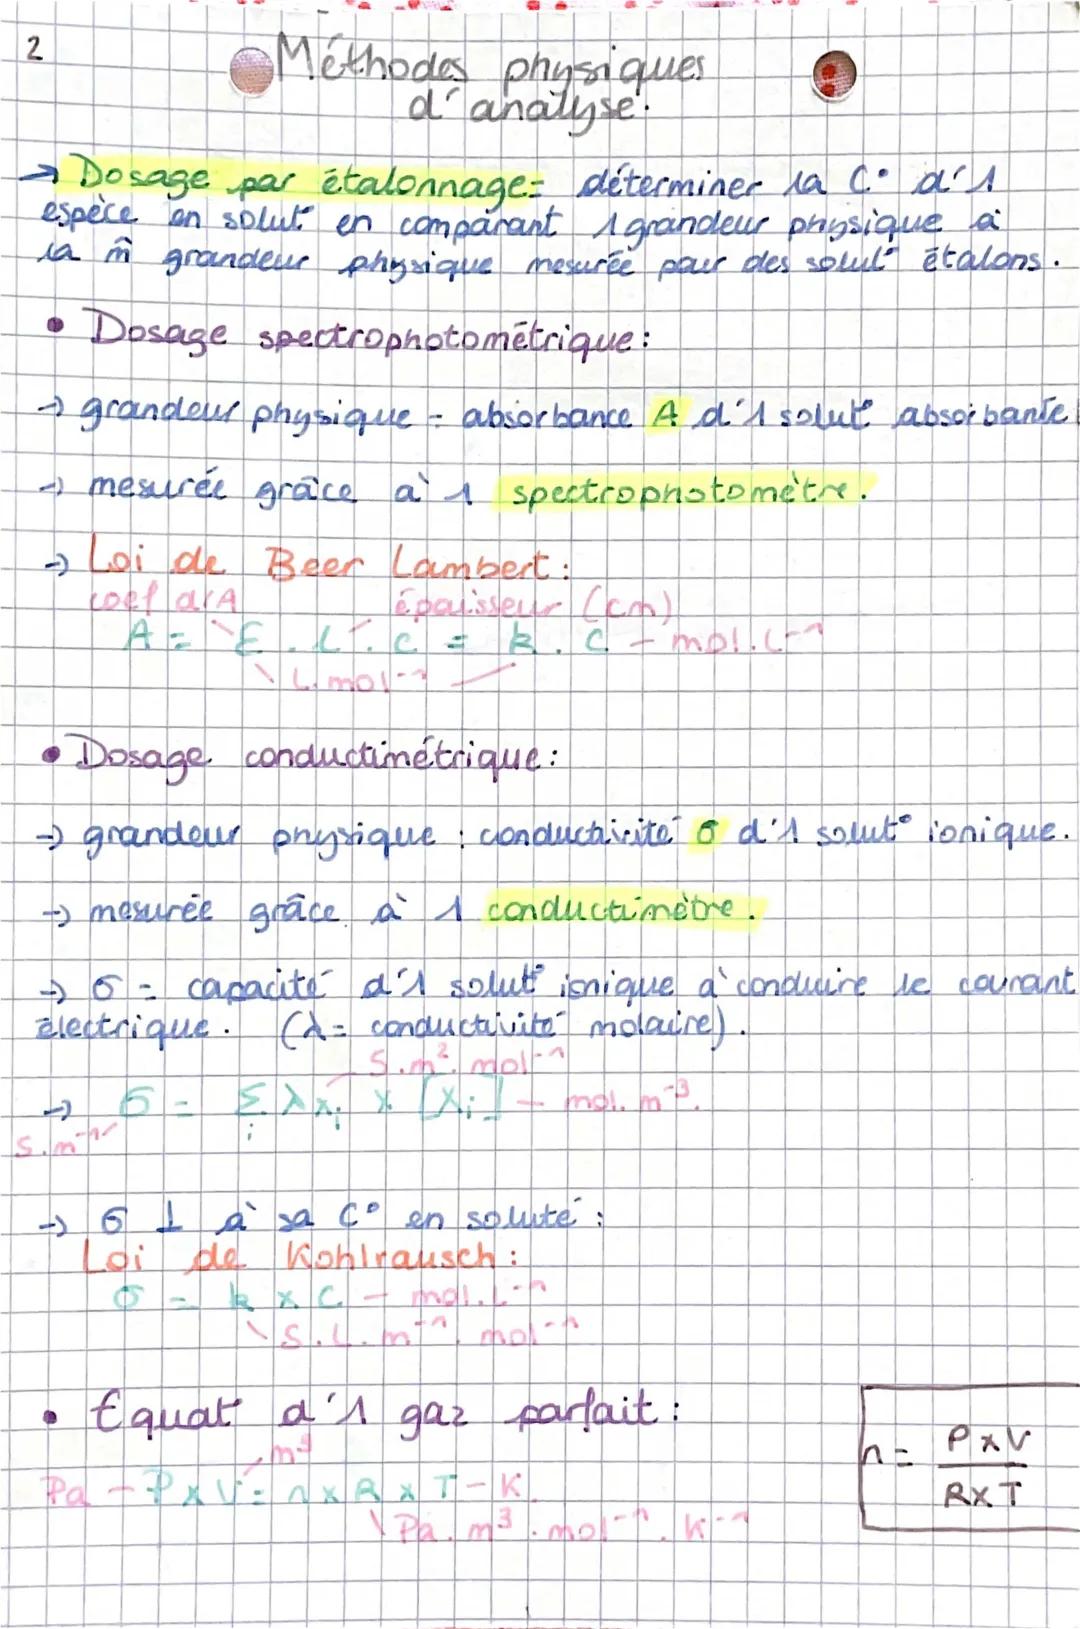 2
Méthodes physiques
d'analyse.
→ Dosage par étalonnage = déterminer la C° d'1
espèce en solut° en comparant 1 grandeur physique à
la m̂ grandeur physique mesurée pour des solut° étalons.
• Dosage spectrophotométrique :
→ grandeur physique = absorbance A d'1 solut° absorbante
→ mesurée grâce à 1 spectrophotomètre.
→ Loi de Beer Lambert :
coef d'A épaisseur (cm)
A = ε . L . C = k . C - mol.L⁻¹
L.mol⁻¹
• Dosage conductimétrique :
→ grandeur physique : conductivité σ d'1 solut° ionique.
→ mesurée grâce à 1 conductimètre.
→ σ = capacité d'1 solut° ionique à conduire le courant
électrique. (λ = conductivité molaire).
S.m².mol⁻¹
→ σ = Σ λxᵢ × [Xᵢ] - mol.m⁻³.
i
S.m⁻¹
→ σ ⊥ à sa C° en soluté :
Loi de Kohlrausch :
σ = k × C - mol.L⁻¹
S.L.m⁻¹.mol⁻¹
• Equat° d'1 gaz parfait :
m³
Pa - P × V = n × R × T - K
Pa.m³.mol⁻¹.K⁻¹
n = P×V / R×T